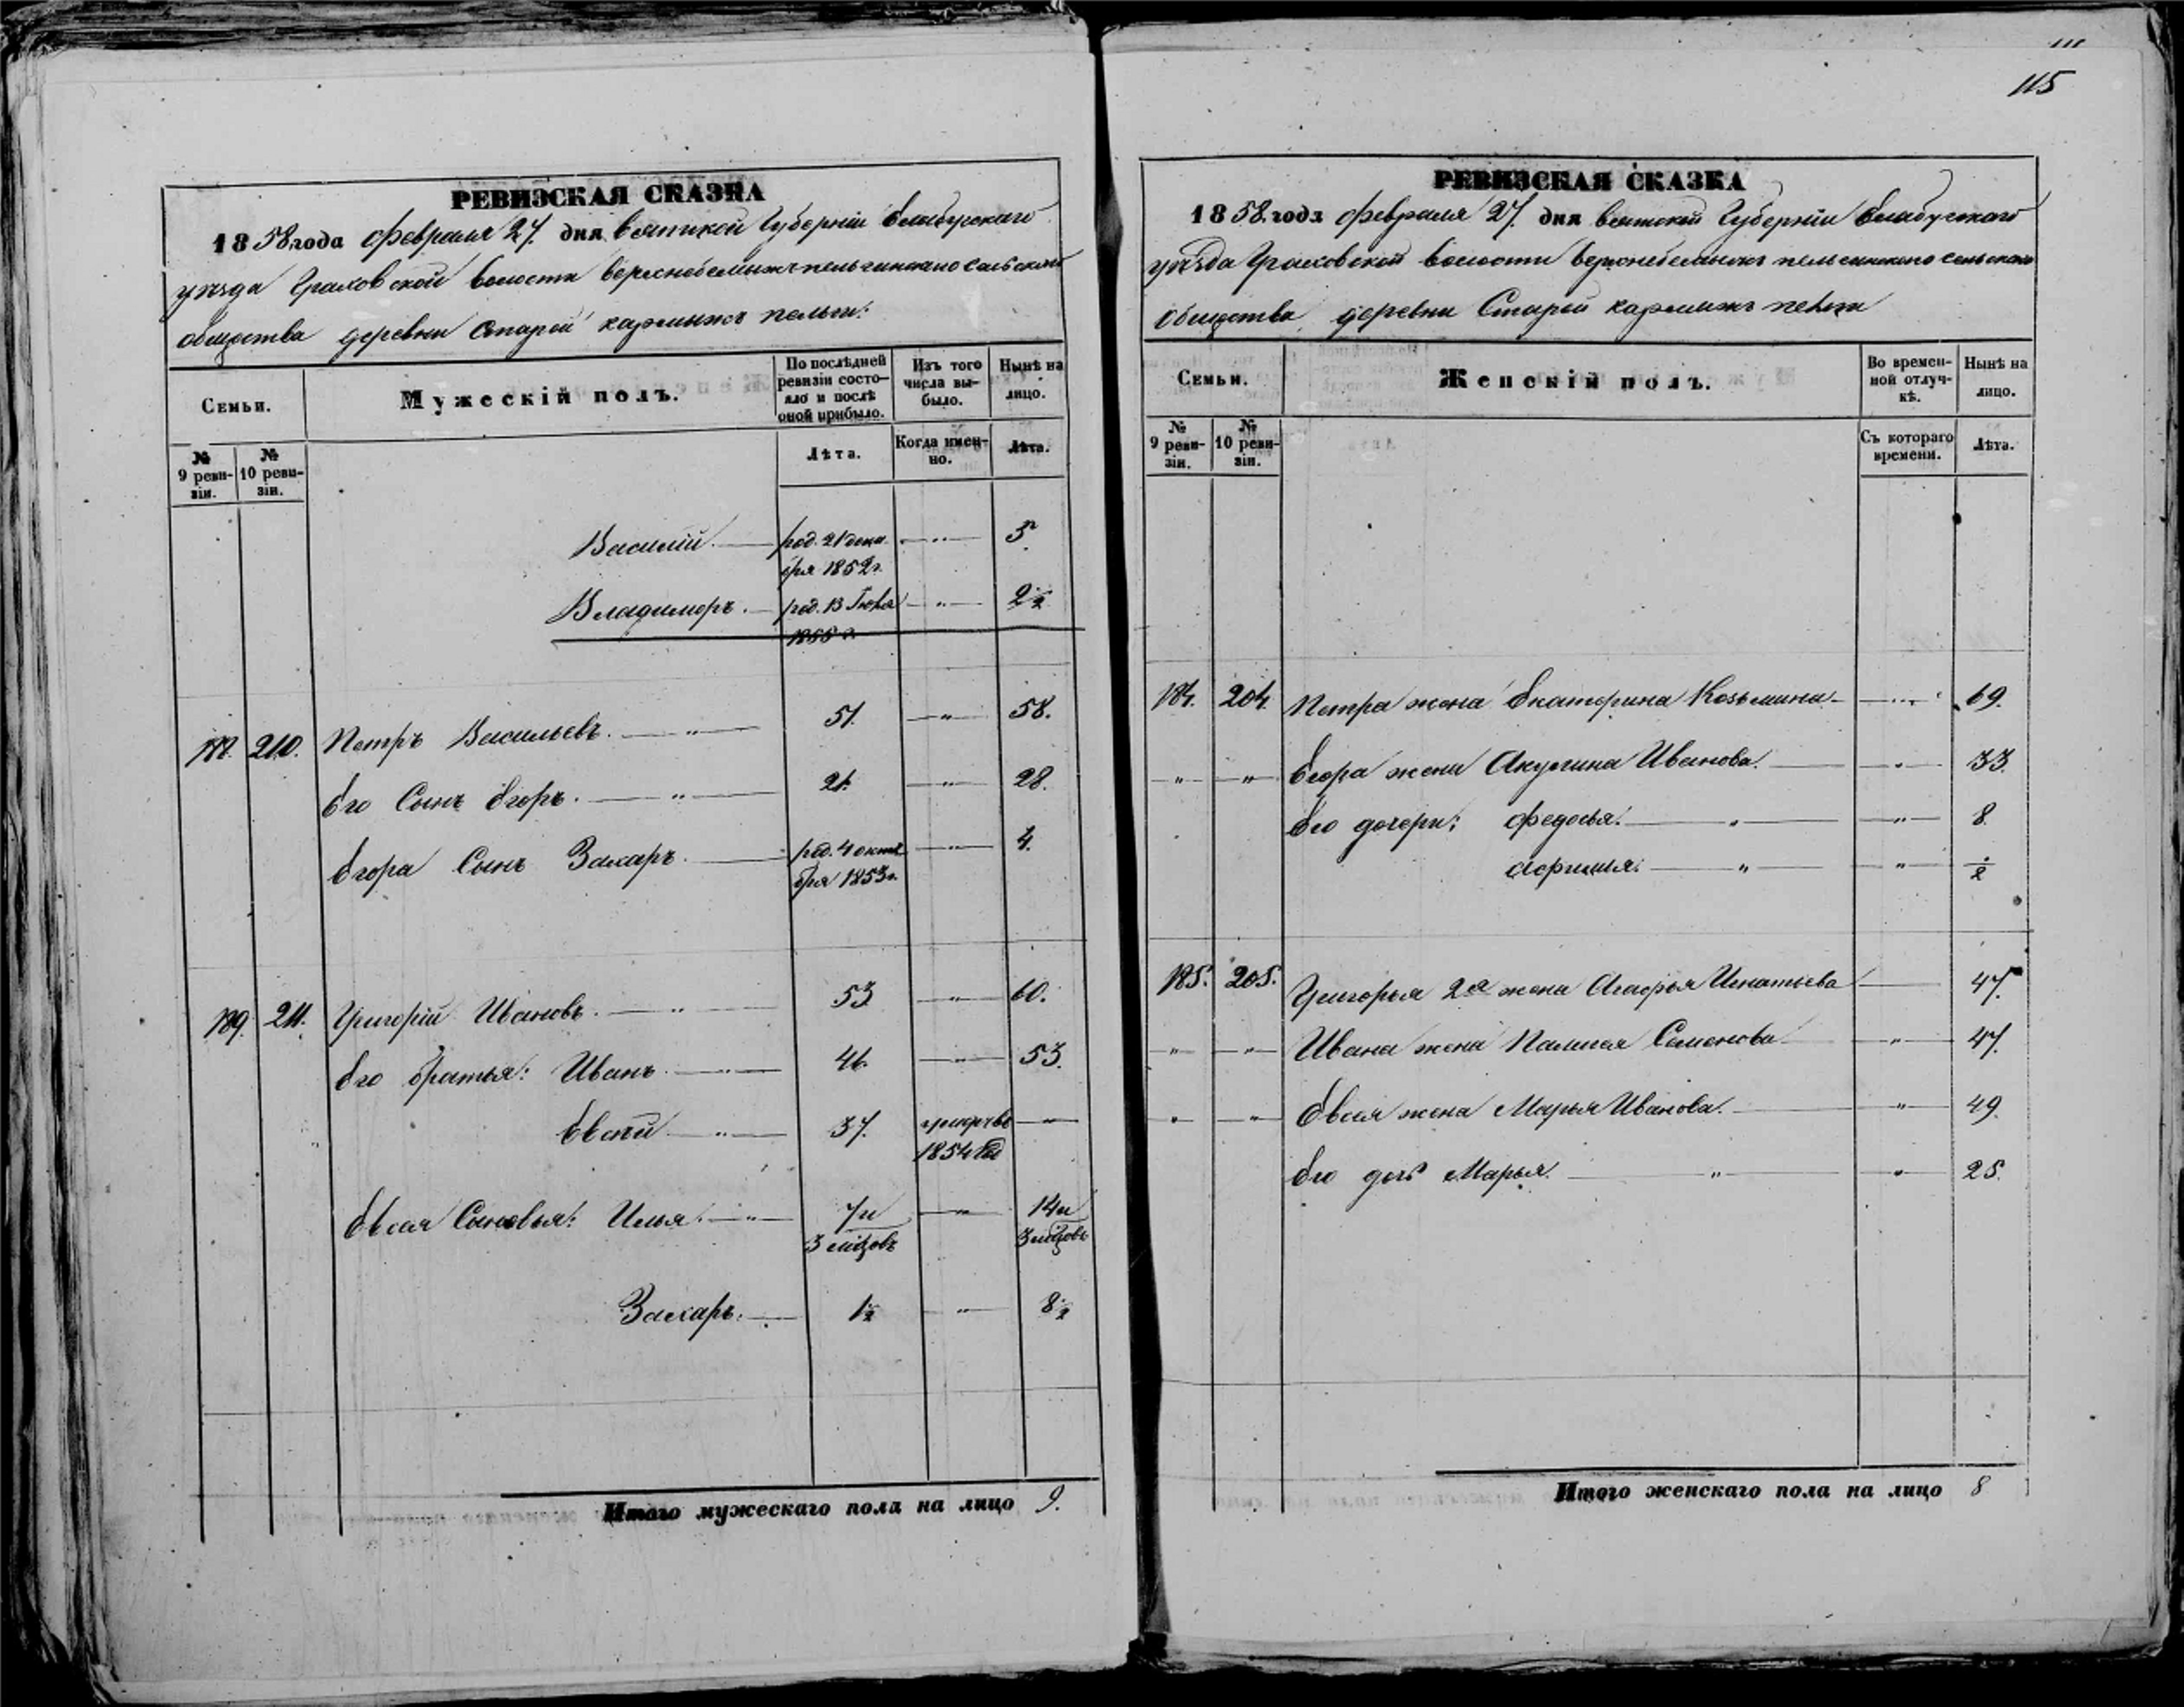 РЕВИЗСКАЯ СКАЗКА
1858 года Февраля 27. дня Вятской Губерніи Елабугскаго
уѣзда Граховской волости сельскаго
общества деревни Старой кармыжъ пельги:
Семьи.
Мужескій полъ.
По послѣдней ревизіи состояло и послѣ оной прибыло.
Изъ того числа выбыло.
Нынѣ на лицо.
№ 9 ревизіи.
№ 10 ревизіи.
Лѣта.
Когда именно.
Лѣта.
Василій. род. 21 дека- " 5
бря 1852 г.
Владимеръ. род. 13 Іюля " 2 1/2
1855 г.
210. Петръ Васильевъ. " 51. " 58.
Его Сынъ Егоръ. " 21. " 28.
Егора Сынъ Захаръ. род. 4 октя- " 4.
бря 1853 г.
189. 211. Григорій Ивановъ. " 53 " 60.
Его братья: Иванъ. " 46. " 53.
Евсѣй " 37. "
1854 год
Евсея Сыновья: Илья. " 7 и " 14 и
3 мѣсцовъ 3 мѣсцовъ
Захаръ. 1 1/2 " 8 1/2
Итого мужескаго пола на лицо 9.
115
РЕВИЗСКАЯ СКАЗКА
1858. года Февраля 27. дня Вятской Губерніи Елабугскаго
уѣзда Граховской волости сельскаго
общества деревни Старой кармыжъ пельги
Семьи.
Женскій полъ.
Во временной отлучкѣ.
Нынѣ на лицо.
№ 9 ревизіи.
№ 10 ревизіи.
Съ котораго времени.
Лѣта.
184. 204. Петра жена Екатерина Козьмина " 69.
" " Егора жена Акулина Иванова. " 33.
Его дочери: Федосья. " " 8.
" " 1/2
185. 205. Григорья 2я жена Агафья Игнатьева 47.
" " Ивана жена Семенова " 47.
" " Евсея жена Марья Иванова. " 49.
Его дочь Марья. " " 25.
Итого женскаго пола на лицо 8